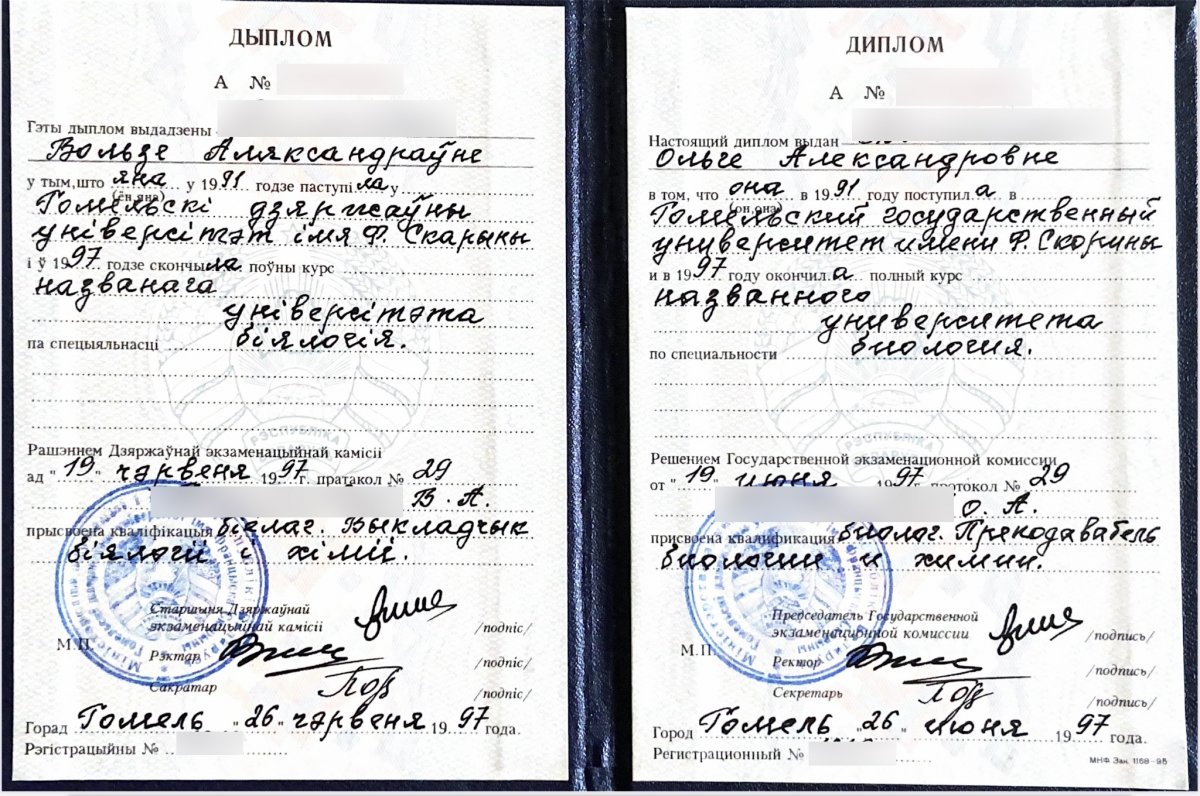 ДЫПЛОМ
А №
Гэты дыплом выдадзены
Вользе Аляксандраўне
у тым, што яна у 1991 годзе паступіла у
(ён, яна)
Гомельскі дзяржаўны
універсітэт імя Ф. Скарыны
і ў 1997 годзе скончыла поўны курс
названага
універсітэта
па спецыяльнасці біялогія.
РЭСПУБЛІКА
Рашэннем Дзяржаўнай экзаменацыйнай камісіі
ад "19" чэрвеня 1997 г. пратакол № 29
В. А.
прысвоена кваліфікацыя біёлаг. Выкладчык
біялогіі і хіміі.
Старшыня Дзяржаўнай
экзаменацыйнай камісіі /подпіс/
М.П. Рэктар /подпіс/
Сакратар /подпіс/
Горад Гомель "26" чэрвеня 1997 года.
Рэгістрацыйны №
ДИПЛОМ
А №
Настоящий диплом выдан
Ольге Александровне
в том, что она в 1991 году поступила в
(он, она)
Гомельский государственный
университет имени Ф. Скорины
и в 1997 году окончила полный курс
названного
университета
по специальности биология.
РЭСПУБЛІКА
Решением Государственной экзаменационной комиссии
от "19" июня 1997 протокол № 29
О. А.
присвоена квалификация биолог. Преподаватель
биологии и химии.
Председатель Государственной
экзаменационной комиссии /подпись/
М.П. Ректор /подпись/
Секретарь /подпись/
Город Гомель "26" июня 1997 года.
Регистрационный №
МНФ Зак. 1168-95